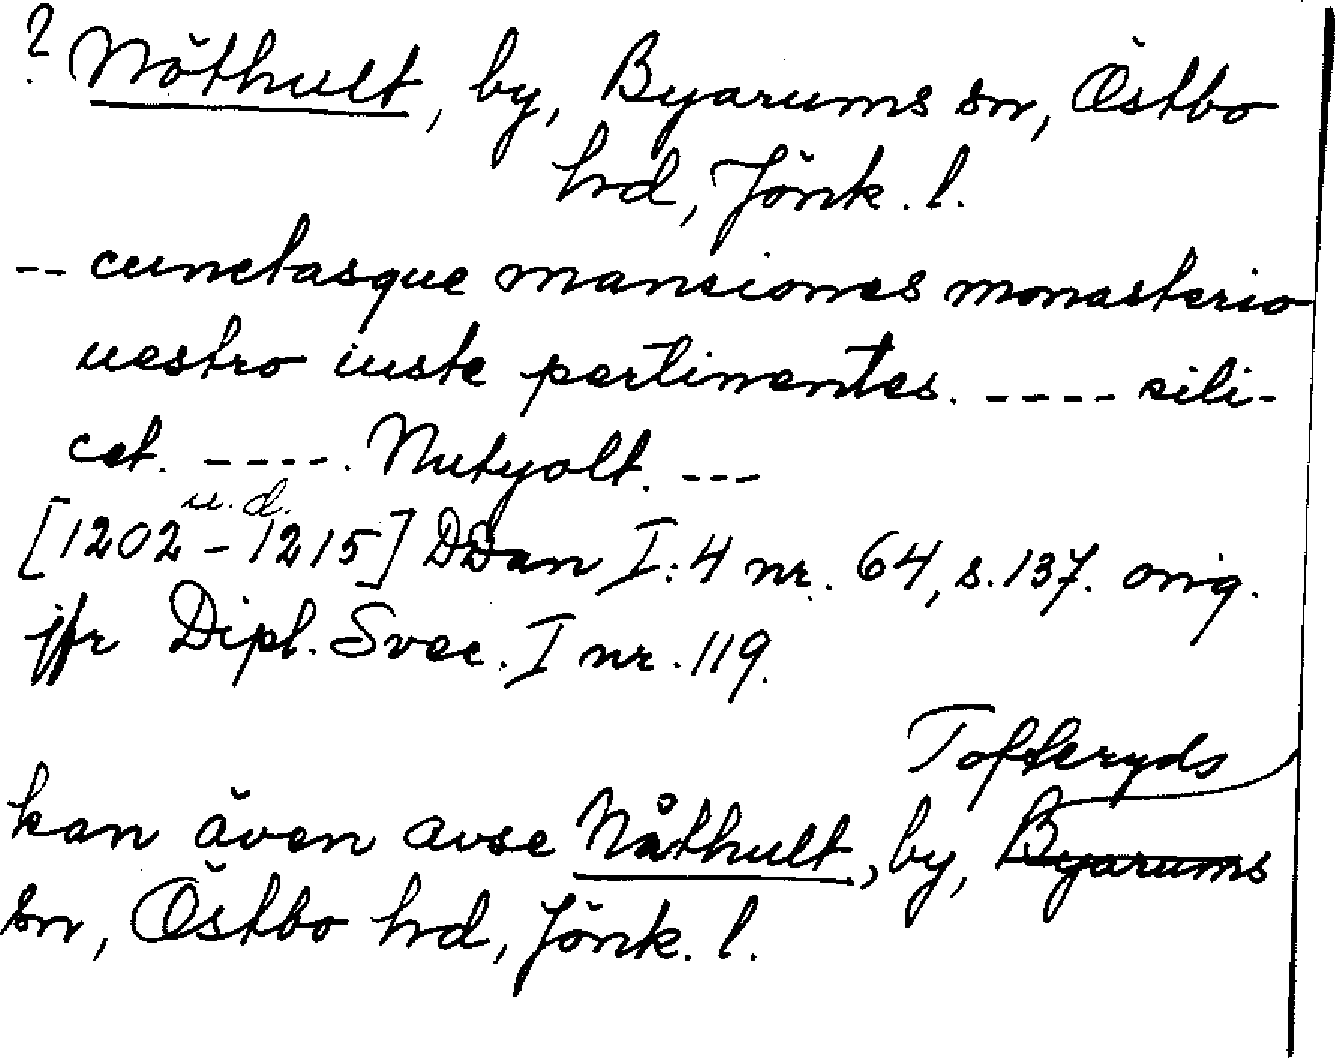 ? Nöthult, by, Byarums sn, Östbo
hrd, Jönk. l.
-- cunctasque mansiones monasterio
uestro iuste pertinentes. ---- sili-
cet. ----. Nutyolt. ---
u. d.
[1202 - 1215] DDan I:4 nr. 64, s. 137. orig.
jfr Dipl. Svec. I nr. 119.
Tofteryds
kan även avse Nåthult, by, Byarums
sn, Östbo hrd, Jönk. l.